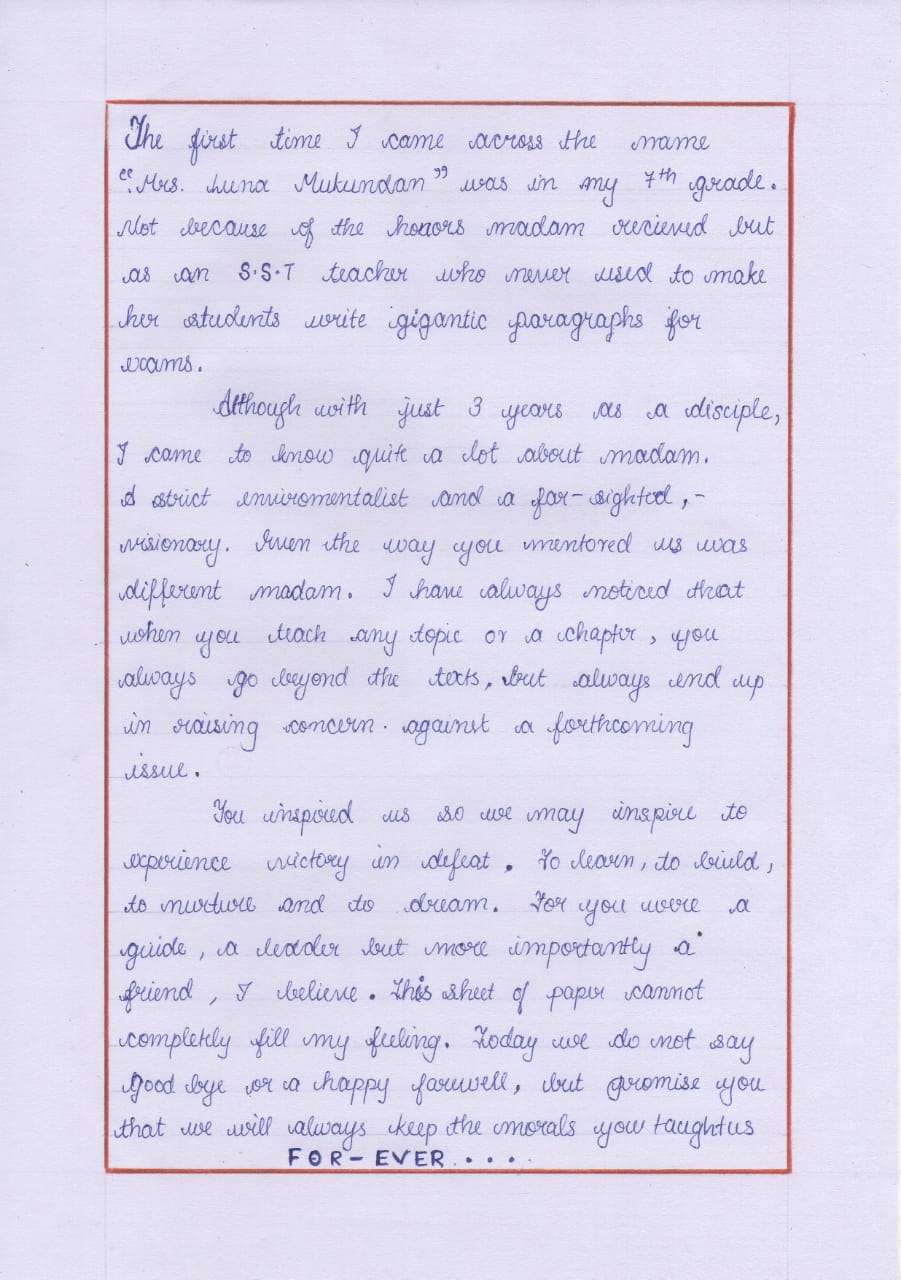 The first time I came across the name
"Mrs. Luna Mukundan" was in my 7th grade.
Not because of the honors madam recieved but
as an S.S.T teacher who never used to make
her students write gigantic paragraphs for
exams.
Although with just 3 years as a disciple,
I came to know quite a lot about madam.
A strict enviromentalist and a far-sighted,-
visionary. Even the way you mentored us was
different madam. I have always noticed that
when you teach any topic or a chapter, you
always go beyond the texts, but always end up
in raising concern. against a forthcoming
issue.
You inspired us so we may inspire to
experience victory in defeat. To learn, to build,
to nurture and to dream. For you were a
guide, a leader but more importantly a
friend, I believe. This sheet of paper cannot
completely fill my feeling. Today we do not say
Good bye or a happy farewell, but promise you
that we will always keep the morals you taught us
FOR-EVER....